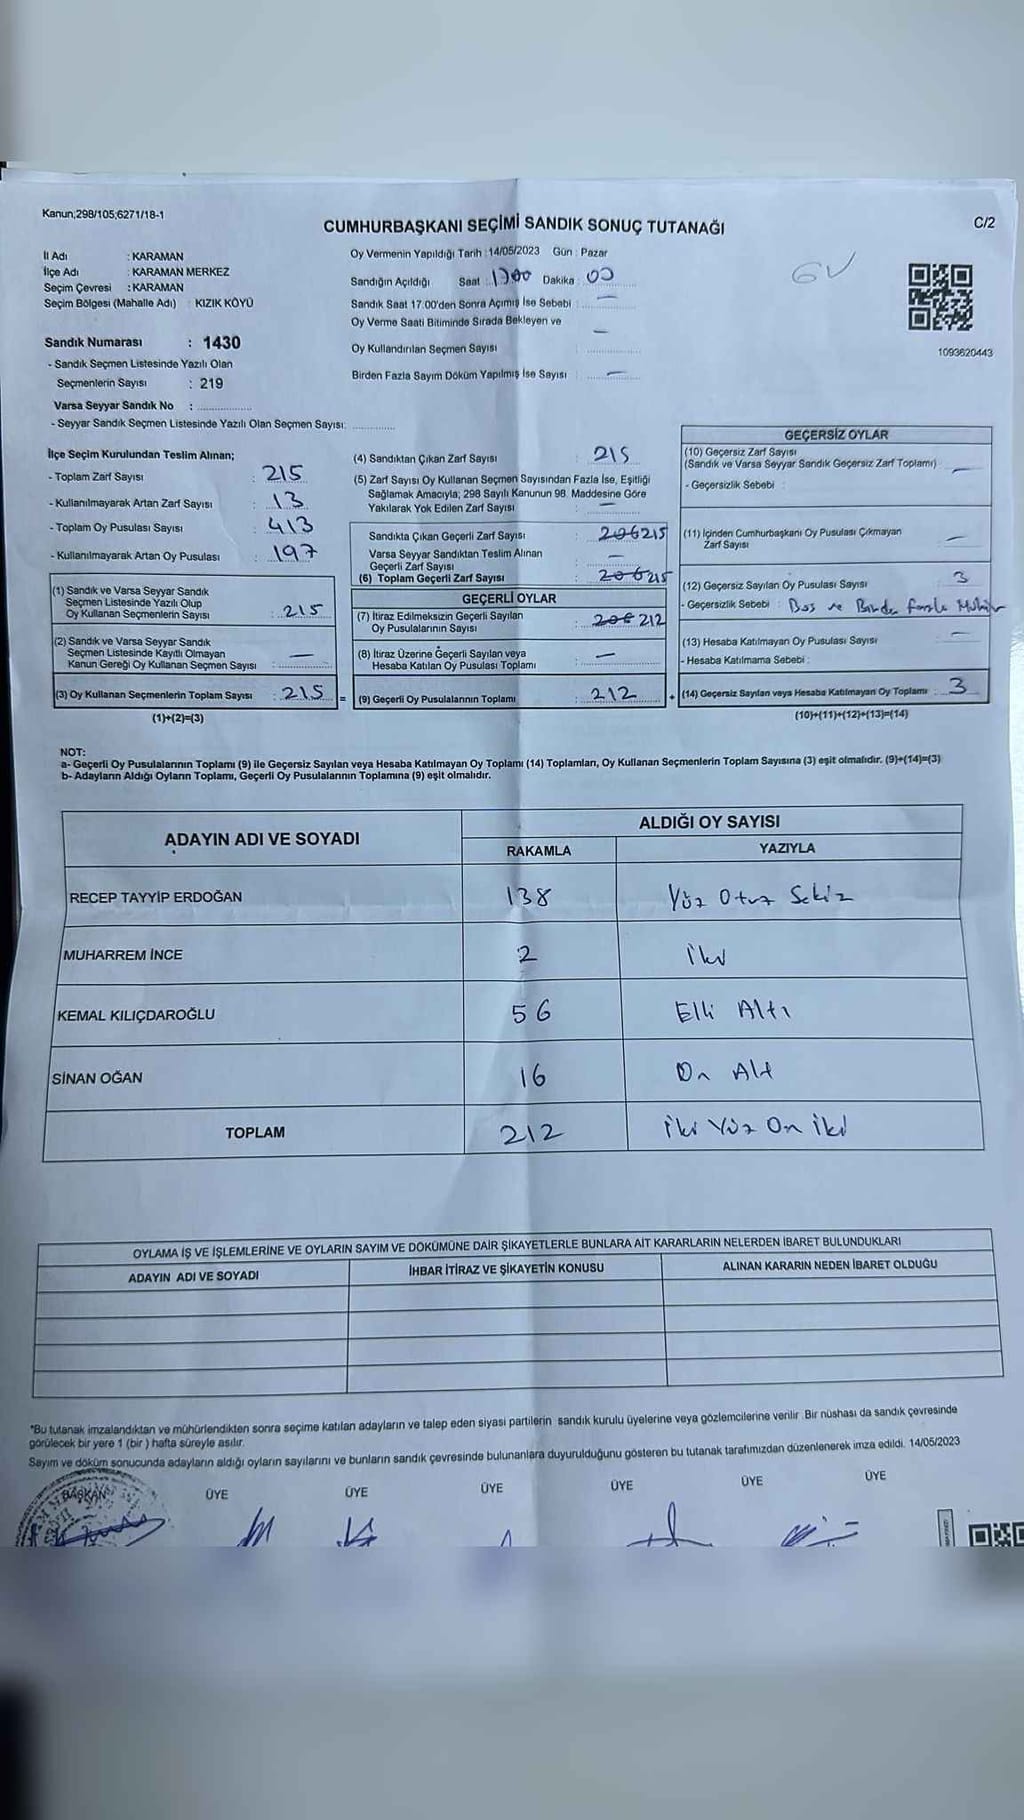 Kanun;298/105;6271/18-1
CUMHURBAŞKANI SEÇİMİ SANDIK SONUÇ TUTANAĞI
C/2
İl Adı : KARAMAN
İlçe Adı : KARAMAN MERKEZ
Seçim Çevresi : KARAMAN
Seçim Bölgesi (Mahalle Adı) : KIZIK KÖYÜ
Sandık Numarası : 1430
- Sandık Seçmen Listesinde Yazılı Olan
Seçmenlerin Sayısı : 219
Varsa Seyyar Sandık No :
- Seyyar Sandık Seçmen Listesinde Yazılı Olan Seçmen Sayısı:
Oy Vermenin Yapıldığı Tarih : 14/05/2023 Gün : Pazar
Sandığın Açıldığı Saat : 1700 Dakika : 00
Sandık Saat 17.00'den Sonra Açımış İse Sebebi : —
Oy Verme Saati Bitiminde Sırada Bekleyen ve
Oy Kullandırılan Seçmen Sayısı —
Birden Fazla Sayım Döküm Yapılmış İse Sayısı : —
GV
1093620443
İlçe Seçim Kurulundan Teslim Alınan;
- Toplam Zarf Sayısı : 215
- Kullanılmayarak Artan Zarf Sayısı : 13
- Toplam Oy Pusulası Sayısı : 413
- Kullanılmayarak Artan Oy Pusulası : 197
(1) Sandık ve Varsa Seyyar Sandık
Seçmen Listesinde Yazılı Olup
Oy Kullanan Seçmenlerin Sayısı : 215
(2) Sandık ve Varsa Seyyar Sandık
Seçmen Listesinde Kayıtlı Olmayan
Kanun Gereği Oy Kullanan Seçmen Sayısı : —
(3) Oy Kullanan Seçmenlerin Toplam Sayısı : 215 =
(1)+(2)=(3)
(4) Sandıktan Çıkan Zarf Sayısı 215
(5) Zarf Sayısı Oy Kullanan Seçmen Sayısından Fazla İse, Eşitliği
Sağlamak Amacıyla; 298 Sayılı Kanunun 98. Maddesine Göre
Yakılarak Yok Edilen Zarf Sayısı : —
Sandıkta Çıkan Geçerli Zarf Sayısı : 206 215
Varsa Seyyar Sandıktan Teslim Alınan
Geçerli Zarf Sayısı : —
(6) Toplam Geçerli Zarf Sayısı : 206 215
GEÇERLİ OYLAR
(7) İtiraz Edilmeksizin Geçerli Sayılan
Oy Pusulalarının Sayısı : 206 212
(8) İtiraz Üzerine Geçerli Sayılan veya
Hesaba Katılan Oy Pusulası Toplamı : —
(9) Geçerli Oy Pusulalarının Toplamı : 212 +
GEÇERSİZ OYLAR
(10) Geçersiz Zarf Sayısı
(Sandık ve Varsa Seyyar Sandık Geçersiz Zarf Toplamı) —
- Geçersizlik Sebebi :
(11) İçinden Cumhurbaşkanı Oy Pusulası Çıkmayan
Zarf Sayısı —
(12) Geçersiz Sayılan Oy Pusulası Sayısı 3
- Geçersizlik Sebebi : Boş ve Birden fazla Mühür
(13) Hesaba Katılmayan Oy Pusulası Sayısı —
- Hesaba Katılmama Sebebi :
(14) Geçersiz Sayılan veya Hesaba Katılmayan Oy Toplamı 3
(10)+(11)+(12)+(13)=(14)
NOT:
a- Geçerli Oy Pusulalarının Toplamı (9) ile Geçersiz Sayılan veya Hesaba Katılmayan Oy Toplamı (14) Toplamları, Oy Kullanan Seçmenlerin Toplam Sayısına (3) eşit olmalıdır. (9)+(14)=(3)
b- Adayların Aldığı Oyların Toplamı, Geçerli Oy Pusulalarının Toplamına (9) eşit olmalıdır.
ADAYIN ADI VE SOYADI
ALDIĞI OY SAYISI
RAKAMLA YAZIYLA
RECEP TAYYİP ERDOĞAN 138 Yüz Otuz Sekiz
MUHARREM İNCE 2 İki
KEMAL KILIÇDAROĞLU 56 Elli Altı
SİNAN OĞAN 16 On Altı
TOPLAM 212 İki Yüz On İki
OYLAMA İŞ VE İŞLEMLERİNE VE OYLARIN SAYIM VE DÖKÜMÜNE DAİR ŞİKAYETLERLE BUNLARA AİT KARARLARIN NELERDEN İBARET BULUNDUKLARI
ADAYIN ADI VE SOYADI İHBAR İTİRAZ VE ŞİKAYETİN KONUSU ALINAN KARARIN NEDEN İBARET OLDUĞU
*Bu tutanak imzalandıktan ve mühürlendikten sonra seçime katılan adayların ve talep eden siyasi partilerin sandık kurulu üyelerine veya gözlemcilerine verilir. Bir nüshası da sandık çevresinde
görülecek bir yere 1 (bir ) hafta süreyle asılır.
Sayım ve döküm sonucunda adayların aldığı oyların sayılarını ve bunların sandık çevresinde bulunanlara duyurulduğunu gösteren bu tutanak tarafımızdan düzenlenerek imza edildi. 14/05/2023
BAŞKAN ÜYE ÜYE ÜYE ÜYE ÜYE ÜYE